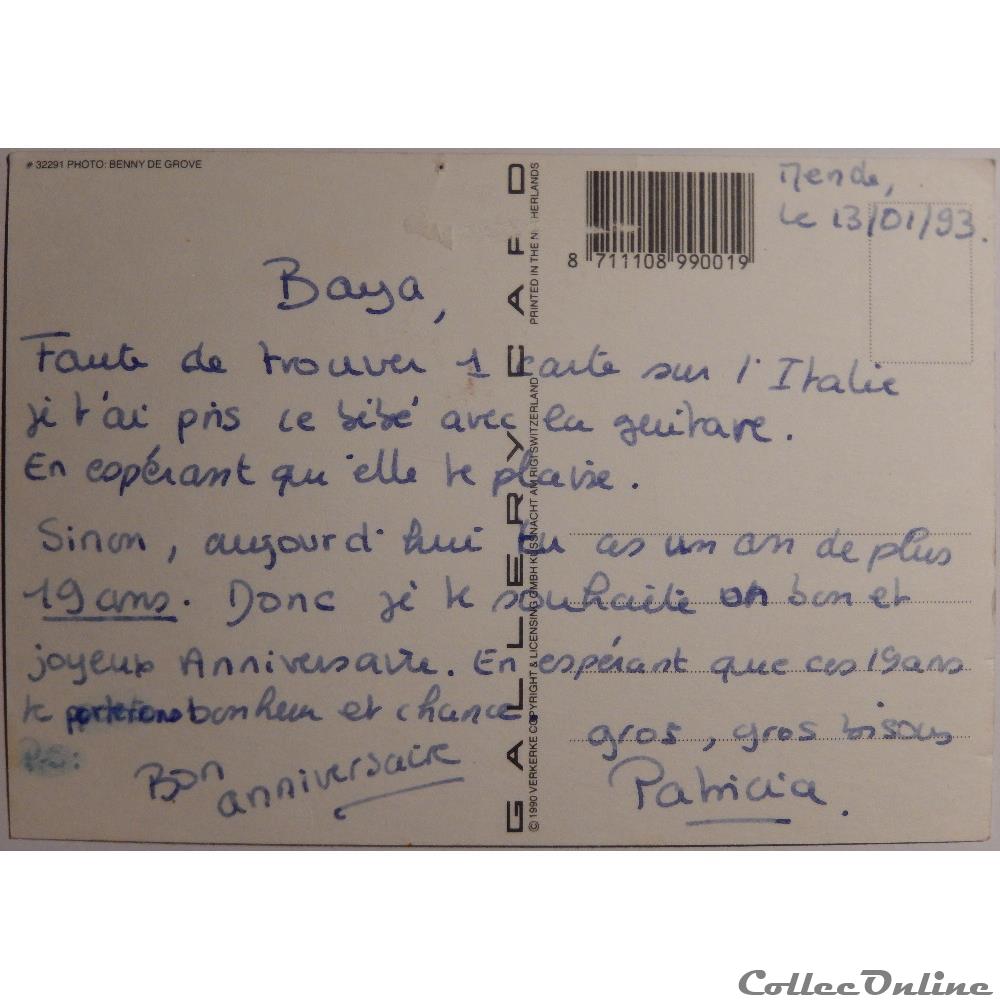 # 32291 PHOTO: BENNY DE GROVE
Mende,
le 13/01/93.
8 711108 990019
Baya,
Faute de trouver 1 carte sur l'Italie
je t'ai pris ce bébé avec la guitare.
En espérant qu'elle te plaise.
Sinon, aujourd'hui tu as un an de plus
19 ans. Donc je te souhaite un bon et
joyeux Anniversaire. En espérant que ces 19 ans
te porterons bonheur et chance.
gros, gros bisous
P.S:
Bon
anniversaire
Patricia.
GALLERY CARD
© 1990 VERKERKE COPYRIGHT & LICENSING GMBH KÜSSNACHT AM RIGI SWITZERLAND PRINTED IN THE NETHERLANDS
CollecOnline